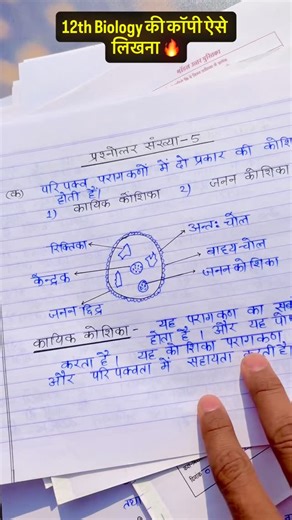 12th Biology की कॉपी ऐसे
लिखना 🔥
प्रश्नोत्तर संख्या-5
(क) परिपक्व परागकणों में दो प्रकार की
होती हैं।
1) कायिक कोशिका 2) जनन कोशिका
रिक्तिका
अन्तः चोल
बाह्य-चोल
केन्द्रक
जनन कोशिका
जनन छिद्र
कायिक कोशिका - यह परागकण का
होता है। और यह
करता है। यह कोशिका परागकण
और परिपक्वता में सहायता करती है।